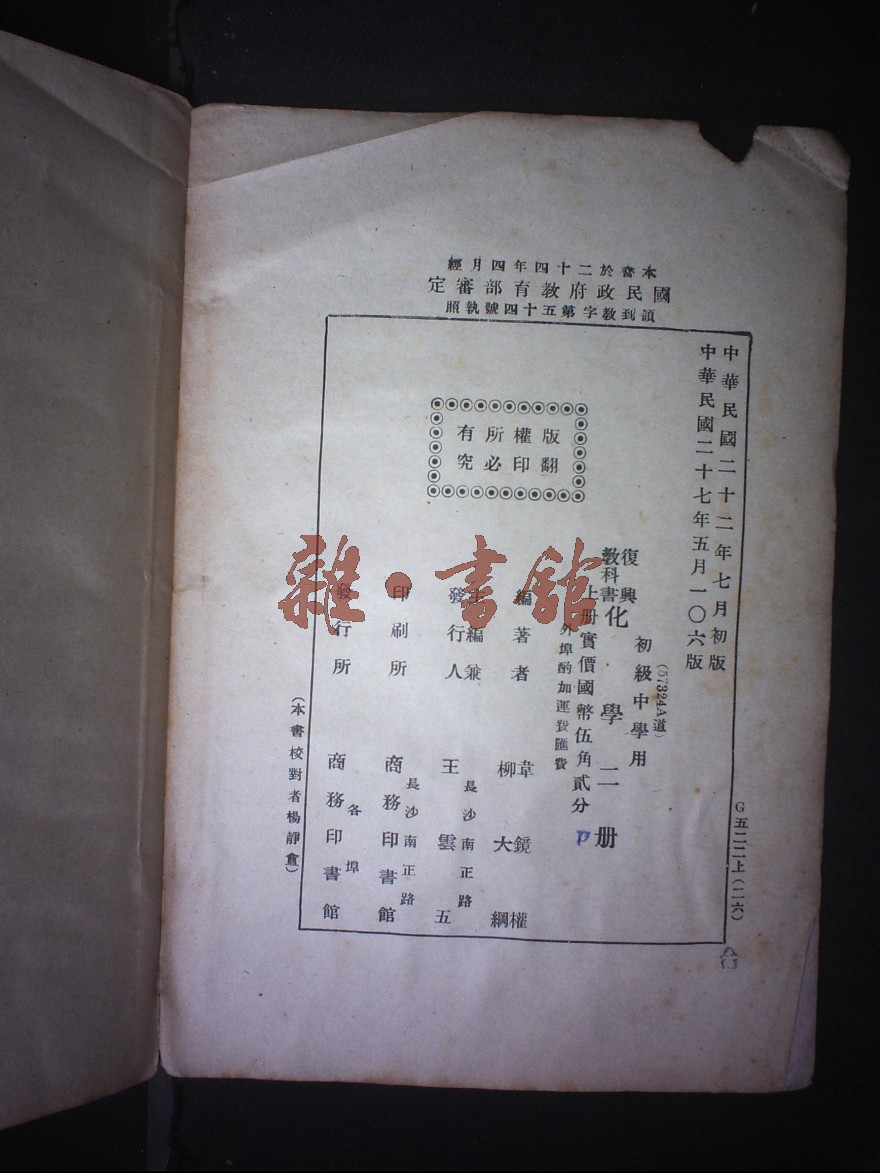 本書於二十四年四月經
國民政府教育部審定
領到教字第五十四號執照
中華民國二十二年七月初版
中華民國二十七年五月一〇六版
(57324A道)
初級中學用
復興教科書化學二册
上册實價國幣伍角貳分
外埠酌加運費匯費
版權所有
翻印必究
編著者 韋鏡權
柳大綱
主編兼發行人 王雲五
長沙南正路
印刷所 商務印書館
長沙南正路
發行所 商務印書館
各埠
(本書校對者楊靜盦)
G五二二上(二六)
雜·書館